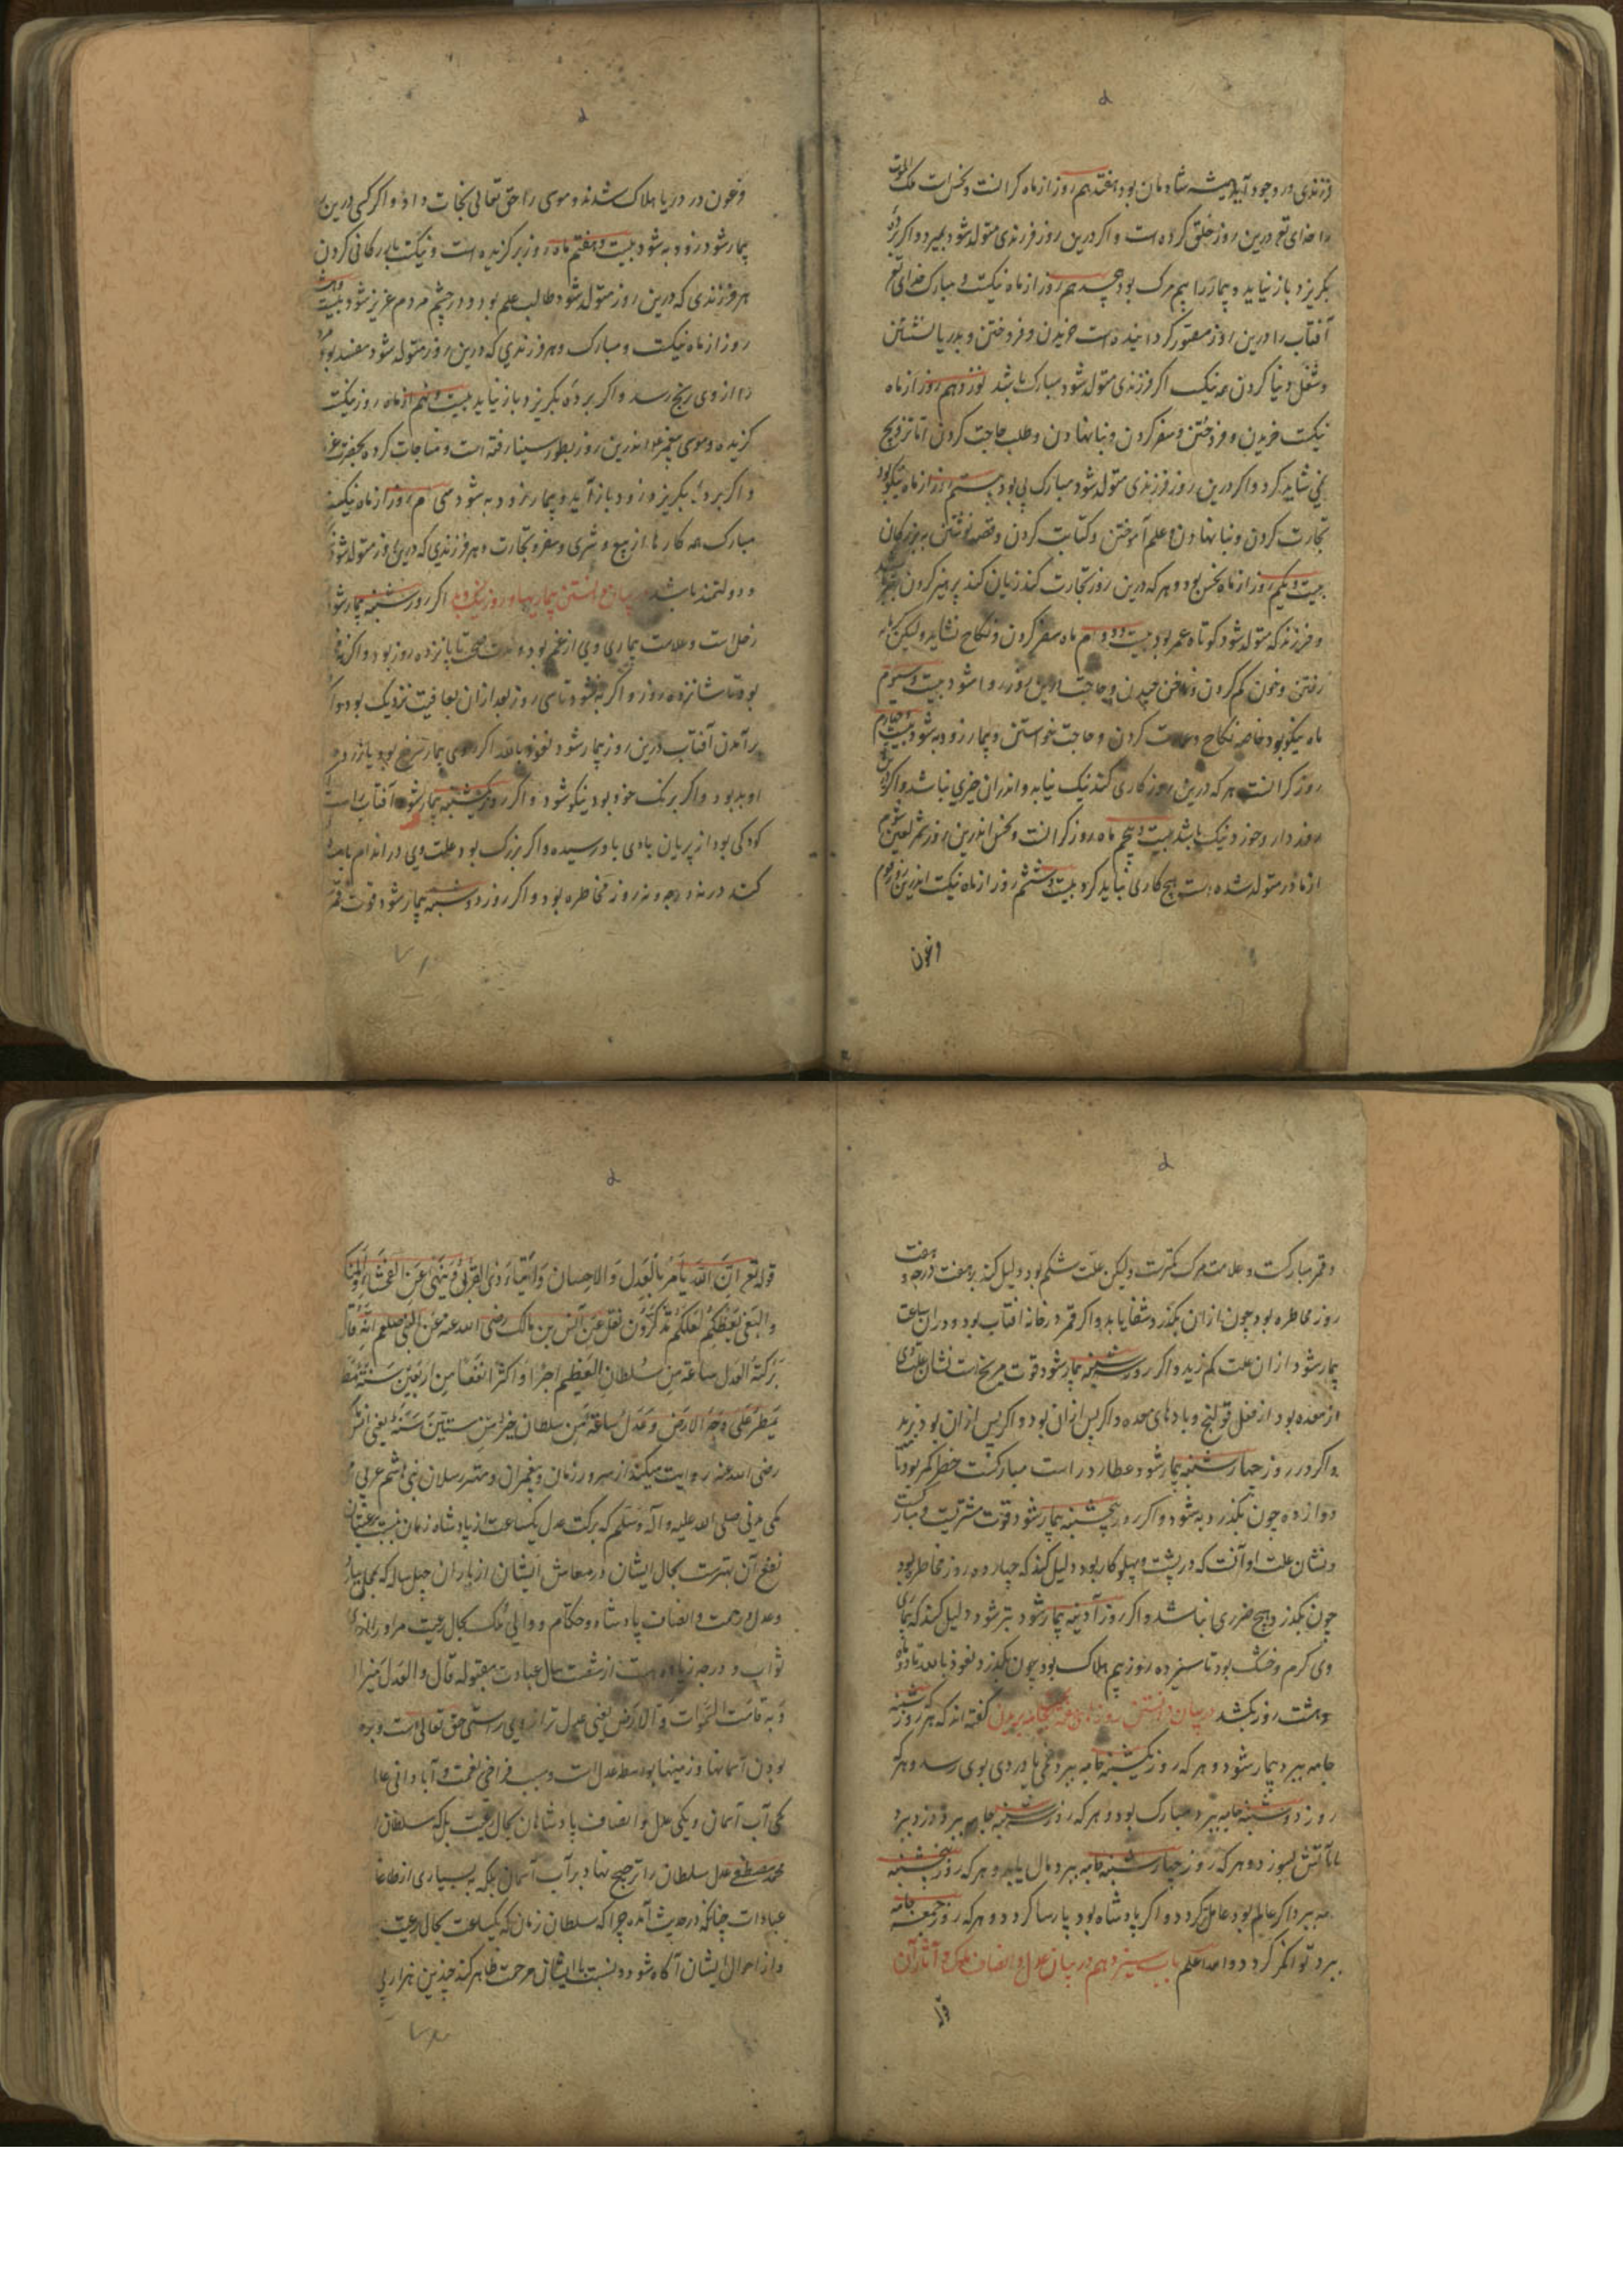 فرزندی در وجود آید همیشه شادمان بود هفتدهم روز از ماه کرانست و نحس است ملک الموت
را خدای تع درین روز خلق کرده است و اکر درین روز فرزندی متولد شود بمیرد و اکر برده
بکریزد باز نیاید و بیمار را بیم مرک بود هچدهم روز از ماه نیکست و مبارک خدای تع
آفتاب را درین روز کردانیده است خریدن و فروختن و بدریا نشستن
و شغل دنیا کردن همه نیک اکر فرزندی متولد شود مبارک باشد نوزدهم روز از ماه
نیکست خریدن و فروختن و سفر کردن و بنا نهادن و طلب حاجت کردن اما تزویج
نمی شاید کرد و اکر درین روز فرزندی متولد شود مبارک پی بود بیستم روز از ماه نیکو بود
تجارت کردن و بنا نهادن و علم آموختن و کتابت کردن و قصه نوشتن به بزرکان
بیست و یکم روز از ماه نحس بود و هر که درین روز تجارت کند زیان کند پرهیز کردن
و فرزند که متولد شود کوتاه عمر بود بیست و دوم ماه سفر کردن و نکاح نشاید ولیکن
رفتن و خون کم کردن و ناخن چیدن و حاجت درین روز روا شود بیست و سیوم
ماه نیکو بود خاصه نکاح کردن و حاجت خواستن و بیمار زود به شود بیست و چهارم
روز کرانست هر که درین روز کاری کند نیک نیابد و اندران خیری نباشد و اکر
روزه دارد خود نیک باشد بیست و پنجم ماه روز کرانست و نحس اندرین روز شمر لعین شوم
از مادر متولد شده است هیچ کاری نباید کرد بیست و ششم روز از ماه نیکست اندرین روز قوم
فرعون
فرعون در دریا هلاک شدند و موسی را حق تعالی نجات داد و اکر کسی درین
بیمار شود زود به شود بیست و هفتم ماه روز برکزیده است و نیکست کردن
هر فرزندی که درین روز متولد شود طالب علم بود و در چشم مردم عزیز شود بیست و هشتم
روز از ماه نیکست و مبارک و هر فرزندی که درین روز متولد شود مفسد بود مردم
را از وی رنج رسد و اکر برده بکریزد باز نیاید بیست و نهم از ماه روز نیکست
کزیده و موسی پیغمبر اندرین روز بطور سینا رفته است و مناجات کرده بحضرت
و اکر برده بکریزد زود باز آید و بیمار زود به شود سی ام روز از ماه نیکست
مبارک همه کارها از بیع و شری و سفر و تجارت و هر فرزندی که درین روز متولد شود
و دولتمند باشد دانستن بیماریها و روز نیک و بد اکر روز شنبه بیمار شود
زحل است و علامت بیماری وی از غم بود و تا پانزده روز بود و اکر
بود تا شانزده روز و اکر به نشود تا سی روز بعد ازان بعافیت نزدیک بود و اکر
برآمدن آفتاب درین روز بیمار شود نعوذ بالله اکر روی بیمار سرخ بود یا زرد
او بد بود و اکر برنک خود بود نیکو شود و اکر روز یکشنبه بیمار شود آفتاب راست
کودکی بود از پریان بادی باو رسیده و اکر بزرک بود علت وی در اندام
کند در نه درجه و نه روز مخاطره بود و اکر روز دوشنبه بیمار شود قوت قمر
و قمر مبارکست و علامت مرک کمترست ولیکن علت شکم بود و دلیل کند بر هفت درجه و هفت
روز مخاطره بود چون ازان بکذرد شفا یابد و اکر قمر در خانه آفتاب بود و دران ساعت
بیمار شود ازان علت کم زید و اکر روز سه شنبه بیمار شود قوت مریخ است نشان علت وی
از معده بود از فعل قولنج و بادهای معده و اکر پس ازان بود و اکر پس ازان بود بزید
و اکر در روز چهارشنبه بیمار شود عطارد راست مبارکست خطر کمتر بود تا
دوازده چون بکذرد به شود و اکر روز پنجشنبه بیمار شود قوت مشتریست و مبارکست
و نشان علت او آنست که در پشت و پهلو کار بود دلیل کند که چهارده روز مخاطره بود
چون بکذرد هیچ ضرری نباشد و اکر روز آدینه بیمار شود بتر شود دلیل کند که بیماری
وی کرم و خشک بود تا سیزده روز بیم هلاک بود چون بکذرد نعوذ بالله تا دو ماه
و هشت روز بکشد در بیان دانستن روزهای جامه بریدن کفته اند که هر که روز شنبه
جامه ببرد بیمار شود و هر که روز یکشنبه جامه ببرد غمی یا دردی بوی رسد و هر که
روز دوشنبه جامه ببرد مبارک بود و هر که روز سه شنبه جامه ببرد دزد برد
یا بآتش بسوزد و هر که روز چهارشنبه جامه ببرد مال یابد و هر که روز پنجشنبه
جامه ببرد اکر عالم بود عامل کردد و اکر پادشاه بود پارسا کردد و هر که روز جمعه جامه
ببرد توانکر کردد والله اعلم باب سیزدهم در بیان عدل و انصاف ملوک و آثار آن
قوله تع ان الله یامر بالعدل والاحسان وایتاء ذی القربی وینهی عن الفحشاء والمنکر
والبغی یعظکم لعلکم تذکرون نقل عن انس بن مالک رضی الله عنه عن النبی صلعم انه قال
برکة العدل ساعة من سلطان العظیم اجرا واکثر انفعا من اربعین سنة مطر
یمطر علی وجه الارض وعدل ساعة من سلطان خیر من ستین سنة یعنی انس
رضی الله عنه روایت میکند از سرور زمان و پیغمبران و مهتر رسلان نبی هاشم عربی
مکی مدنی صلی الله علیه و آله وسلم که برکت عدل یکساعت از پادشاه زمان نسبت برعیتان
نفع آن بهترست بحال ایشان در معاش ایشان از باران چهل ساله که
و عدل و رحمت و انصاف پادشاه و حکام و والی ملک بحال رعیت مر او را
ثواب و درجه زیاده است از شصت سال عبادت مقبوله قال والعدل میزان
وبه قامت السموات والارض یعنی عدل ترازوی راستی حق تعالی است و بدو
بودن آسمانها و زمینها بواسطه عدل است و سبب فراخی نعمت و آبادانی عالم
یکی آب آسمان و یکی عدل و انصاف پادشاهان بحال رعیت بل که سلطان
محمد مصطفی عدل سلطان را ترجیح نهاد بر آب آسمان بلکه به بسیاری از طاعات
عبادات چنانکه در حدیث آمده چرا که سلطان زمان که یکساعت بحال رعیت
و از احوال ایشان آکاه شود و نسبت بایشان مرحمت ظاهر کند چندین هزار